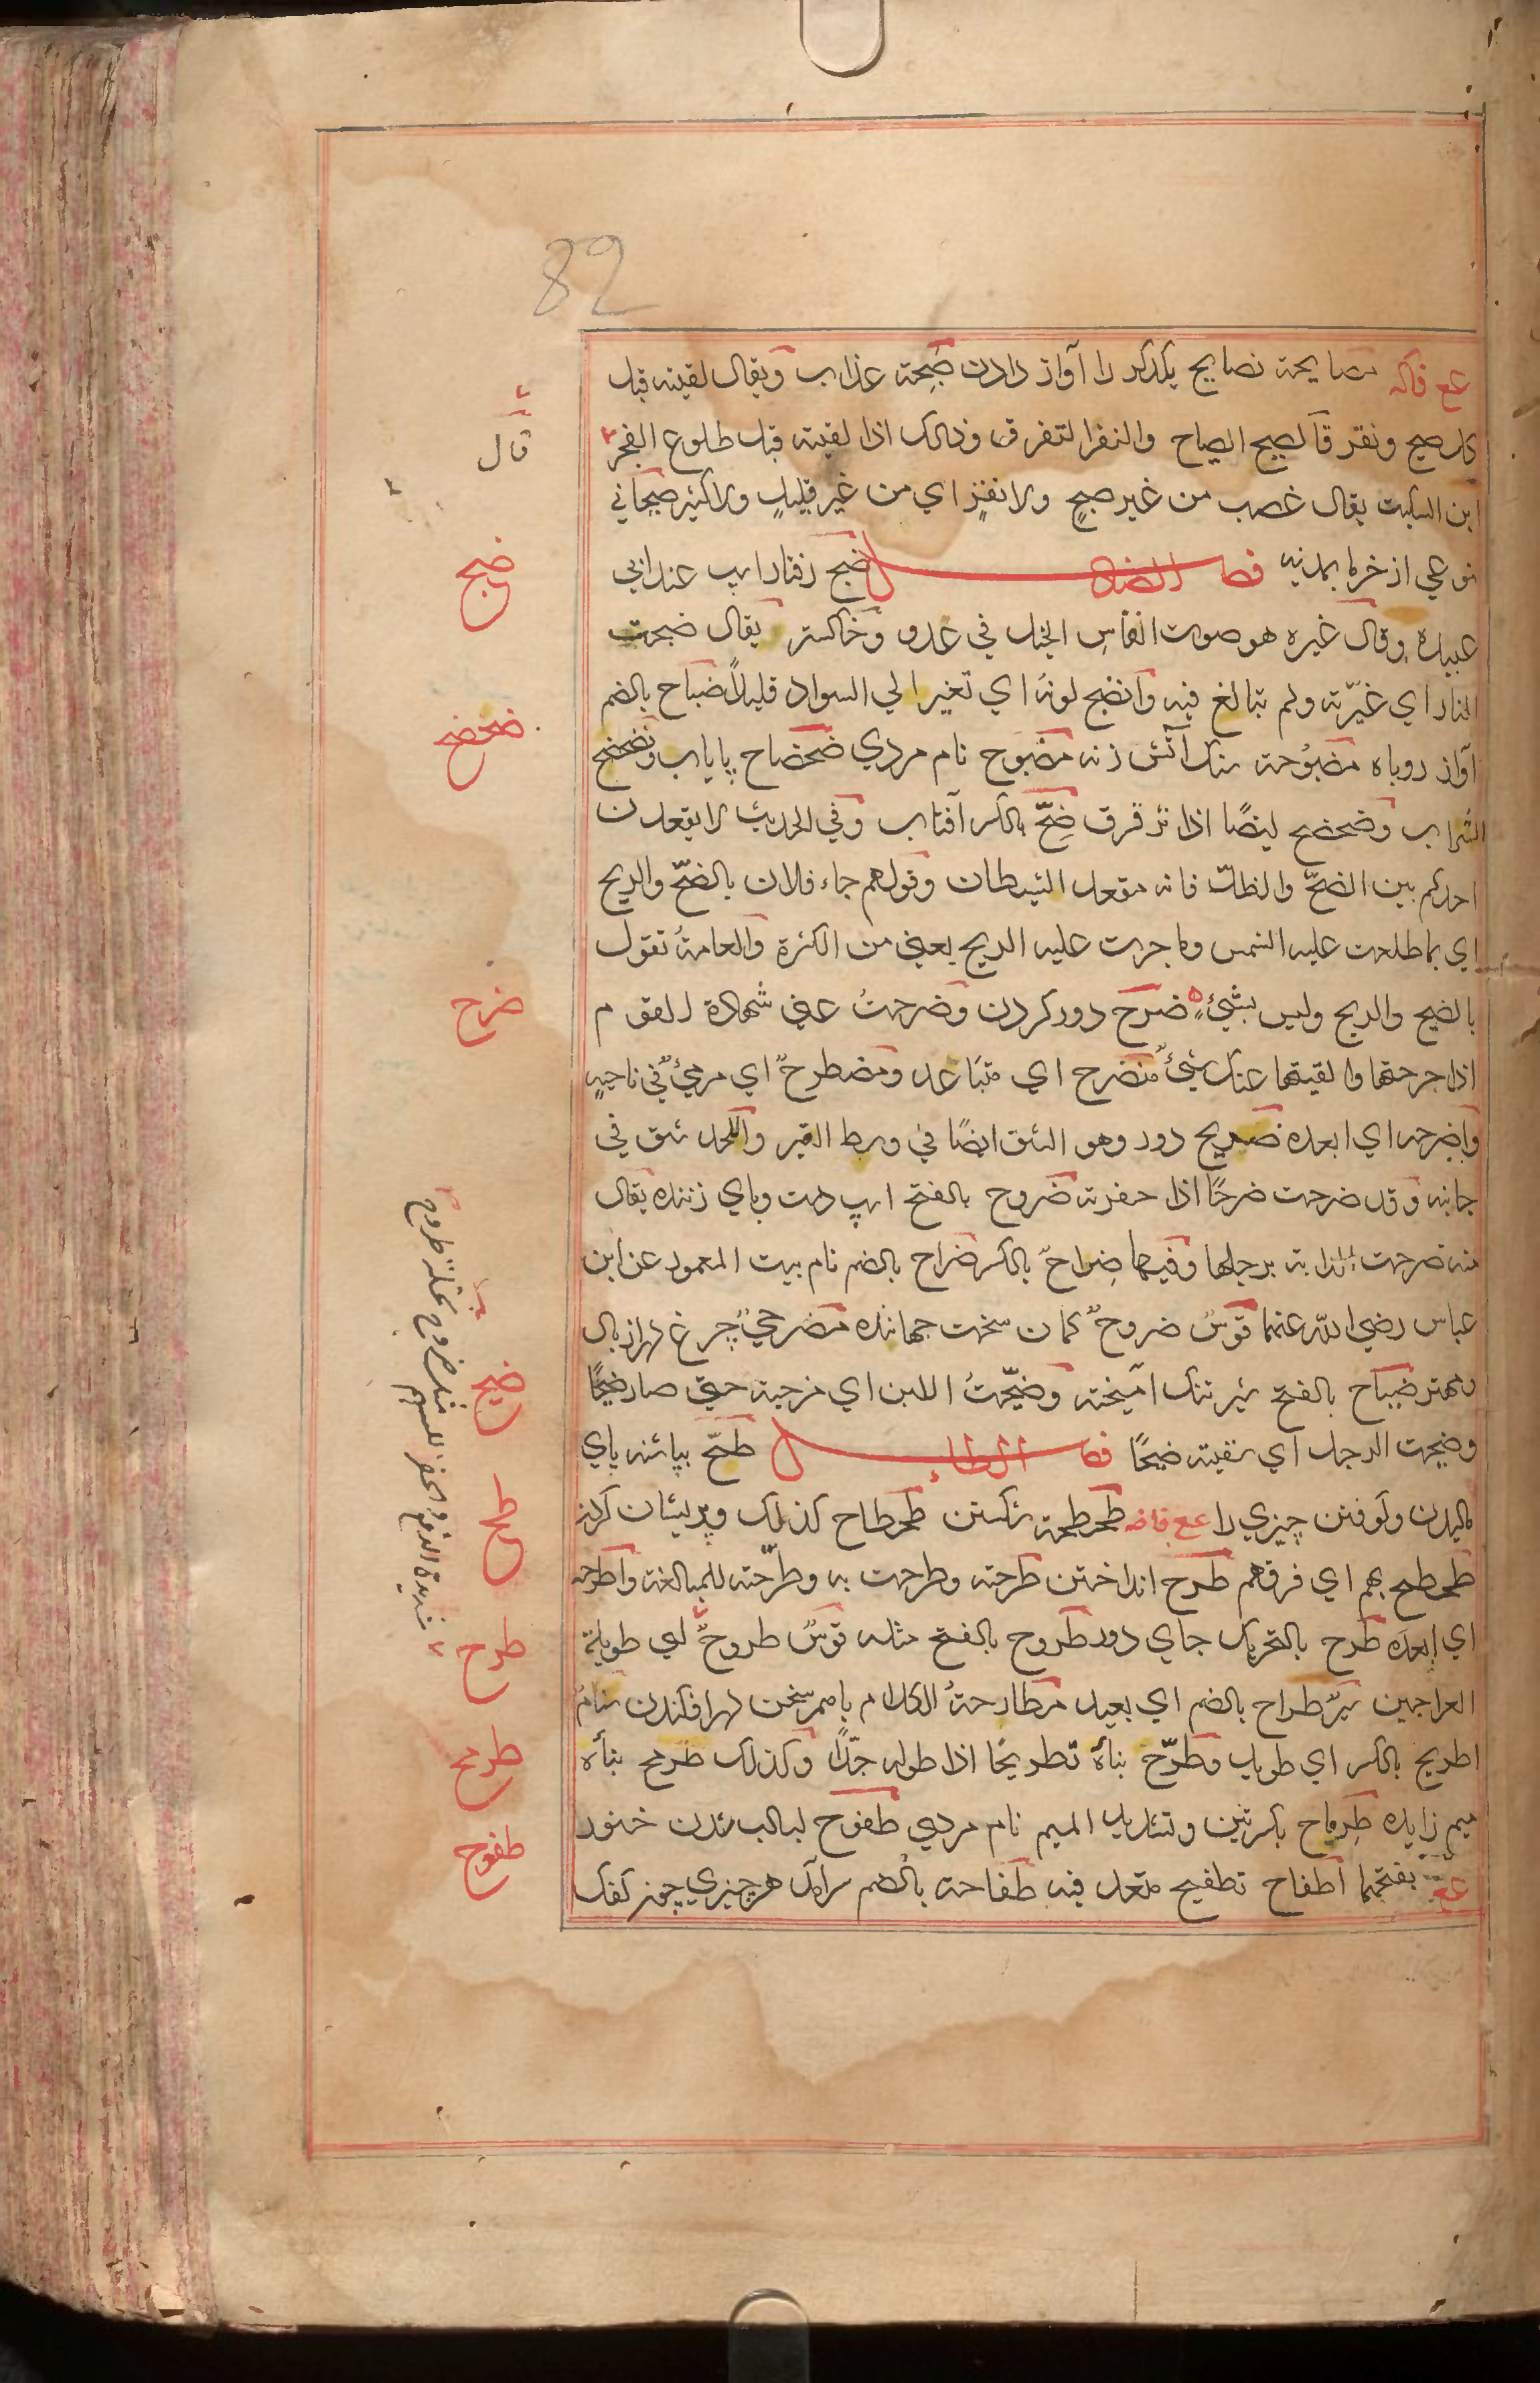 82
عع فاکه مصایحة تصایح یکدکر را آواز دادن صَیحة عذاب ویقال لقیته قبل
کل صیح ونفر فالصیح الصیاح والنفر التفرق وذلک اذا لقیته قبل طلوع الفجر
قال
ابن السکیت یقال غصب من غیر صیحٍ ولا نفرٍ ای من غیر قلیلٍ ولا کثیر صیحانی
نوعی از خرما بمدینه فصل الضاد ضبح رفتار اسپ عند ابی
ضبح
عبیدة وقال غیره هو صوت انفاسِ الخیل فی عدو وخاکستر یقال ضبحت
النار ای غیّرته ولم تبالغ فیه وانضبح لونهُ ای تغیر الی السواد قلیلاً ضباح بالضم
آواز روباه مضبُوحة سنک آتش زنه مضبوح نام مردی ضحضاح پایاب وتضحضح
ضحضح
السّراب وضحضح ایضًا اذا ترقرق ضِحّ بالکسر آفتاب وفی الحدیث لا یقعدن
احدکم بین الضحّ والظلّ فانه مقعد الشیطان وقولهم جاء فلان بالضحّ والریح
ای بما طلعت علیه الشمس وما جرت علیه الریح یعنی من الکثرة والعامةُ تقول
بالضیح والریح ولیس بشیءٍ ضرح دور کردن وضرحتُ عنی شهادة القوم
ضرح
اذا جرحتها والقیتها عنک شیءٌ منضرح ای متبَاعد ومضطرحٌ ای مرمیٌ فی ناحیةٍ
واضرحه ای ابعده ضریح دور وهو الشق ایضًا فی وسط القبر واللحد شق فی
جانبه وقد ضرحت ضرحًا اذا حفرته ضروح بالفتح اسپ دست وپای زننده یقال
منه ضرحت الدابة برجلها وفیها ضِراحٌ بالکسر ضراح بالضم نام بیت المعمور عن ابن
عباس رضی الله عنهما قوسٌ ضروحٌ کمان سخت جهاننده مضرحیٌ چرغ دراز بال
ومهتر ضیاح بالفتح شیر تنک آمیخته وضیّحتُ اللبن ای مزجته حتی صار ضیحًا
ضیح
وضیحت الرجل ای سقیته ضیحًا فصل الطاء طحّ بپاشنه پای
مالیدن وکوفتن چیزی را عع فاضه طحطحة شکستن طحطاح کذلک وپریشان کردن
طح
طحطح بهم ای فرقهم طرح انداختن طرحته وطرحت به وطرّحته للمبالغة واطرحه
ای ابعدَه طرح بالتحریک جای دور طروح بالفتح مثله قوسٌ طروحٌ ای طویلة
طرح
العراجین سیرٌ طراح بالضم ای بعید مطارحةُ الکلام باهم سخن درافکندن سنامٌ
اطریح بالکسر ای طویل وطرّح بناءَهُ تطریحًا اذا طوله جدّاً وکذلک طرمح بناءه
طرمح
میم زایده طِرِمّاح بکسرتین وتشدید المیم نام مردی طفوح لبالب شدن خنور
طفوح
عع بفتحها اطفاح تطفیح متعد فیه طفاحة بالضم سرآمد هر چیزی چون کفک